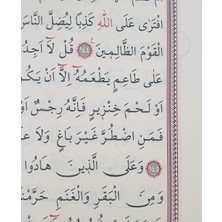 افْتَرَىٰ عَلَى اللَّهِ كَذِبًا لِيُضِلَّ النَّاسَ
الْقَوْمَ الظَّالِمِينَ ﴿١٤٤﴾ قُلْ لَا أَجِدُ
عَلَىٰ طَاعِمٍ يَطْعَمُهُ إِلَّا أَنْ يَكُو
أَوْ لَحْمَ خِنْزِيرٍ فَإِنَّهُ رِجْسٌ أَوْ
فَمَنِ اضْطُرَّ غَيْرَ بَاغٍ وَلَا عَا
﴿١٤٥﴾ وَعَلَى الَّذِينَ هَادُوا
وَمِنَ الْبَقَرِ وَالْغَنَمِ حَرَّمْنَا